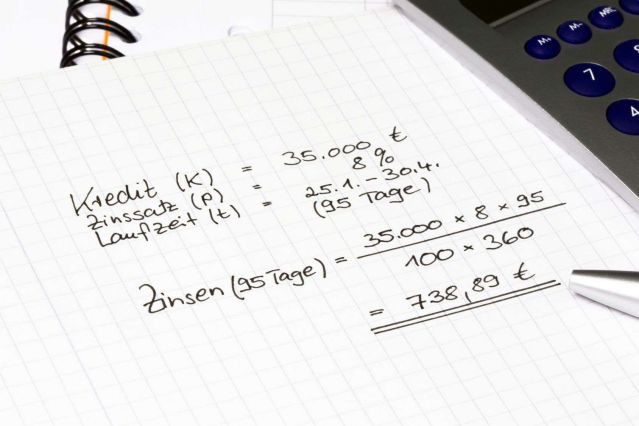 M+ M- MRC
7
4
Kredit (K) = 35.000 €
Zinssatz (P) = 8 %
Laufzeit (t) = 25.1. - 30.4.
(95 Tage)
Zinsen (95 Tage) = 35.000 × 8 × 95
100 × 360
= 738,89 €